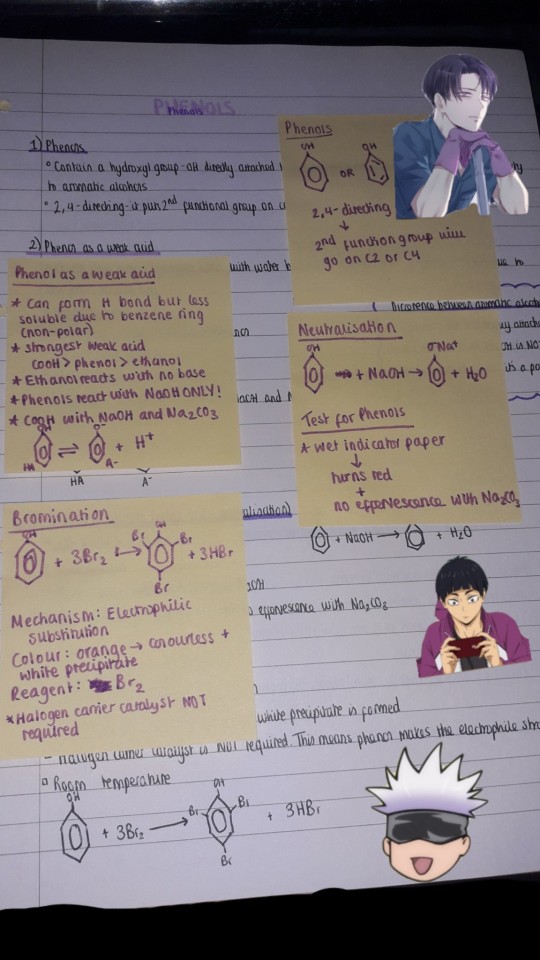 PHENOLS
Phenols
1) Phenols
° Contain a hydroxyl group -OH directly attached
to aromatic alcohols
° 2,4-directing-it puts 2nd functional group on
2) Phenol as a weak acid
with water
due to
Phenols
OH
OH
OR
2,4-directing
↓
2nd function group will
go on C2 or C4
Phenol as a weak acid
* Can form H bond but less
soluble due to benzene ring
(non-polar)
* strongest weak acid
COOH > phenol > ethanol
* Ethanol reacts with no base
* Phenols react with NaOH ONLY!
* COOH with NaOH and Na₂CO₃
OH
O⁻
⇌ + H⁺
HA
A⁻
HA
A⁻
Difference between aromatic
Neutralisation
OH
O⁻Na⁺
+ NaOH → + H₂O
Test for Phenols
* wet indicator paper
↓
turns red
+
no effervescence with Na₂CO₃
+ NaOH → + H₂O
effervescence with Na₂CO₃
Bromination
OH
OH
Br
Br
+ 3Br₂ → + 3HBr
Br
Mechanism: Electrophilic
substitution
Colour: orange → colourless +
white precipitate
Reagent: Br₂
* Halogen carrier catalyst NOT
required
white precipitate is formed
- Halogen carrier catalyst is NOT required. This means phenol makes the electrophile
▫ Room temperature
OH
OH
Br
Br
+ 3Br₂ → + 3HBr
Br